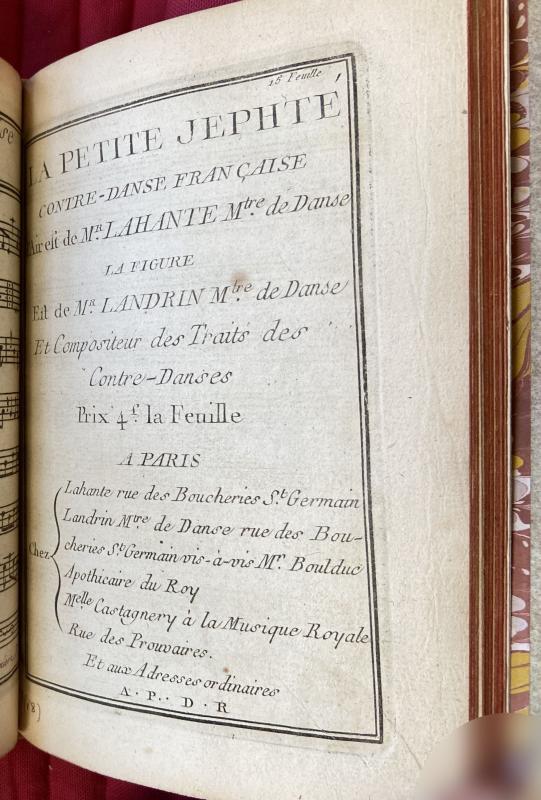 15.e Feuille
LA PETITE JEPHTÉ
CONTRE-DANSE FRANÇAISE
l'Air est de M.R LAHANTE M.tre de Danse
LA FIGURE
Est de M.R LANDRIN M.tre de Danse
Et Compositeur des Traités des
Contre-Danses
Prix 4.f la Feuille
A PARIS
Chez
Lahante rue des Boucheries S.t Germain
Landrin M.tre de Danse rue des Bou-
cheries S.t Germain vis-à-vis M.r Boulduc
Apothicaire du Roy
M.elle Castagnery à la Musique Royale
Rue des Prouvaires.
Et aux Adresses ordinaires
A. P. D. R